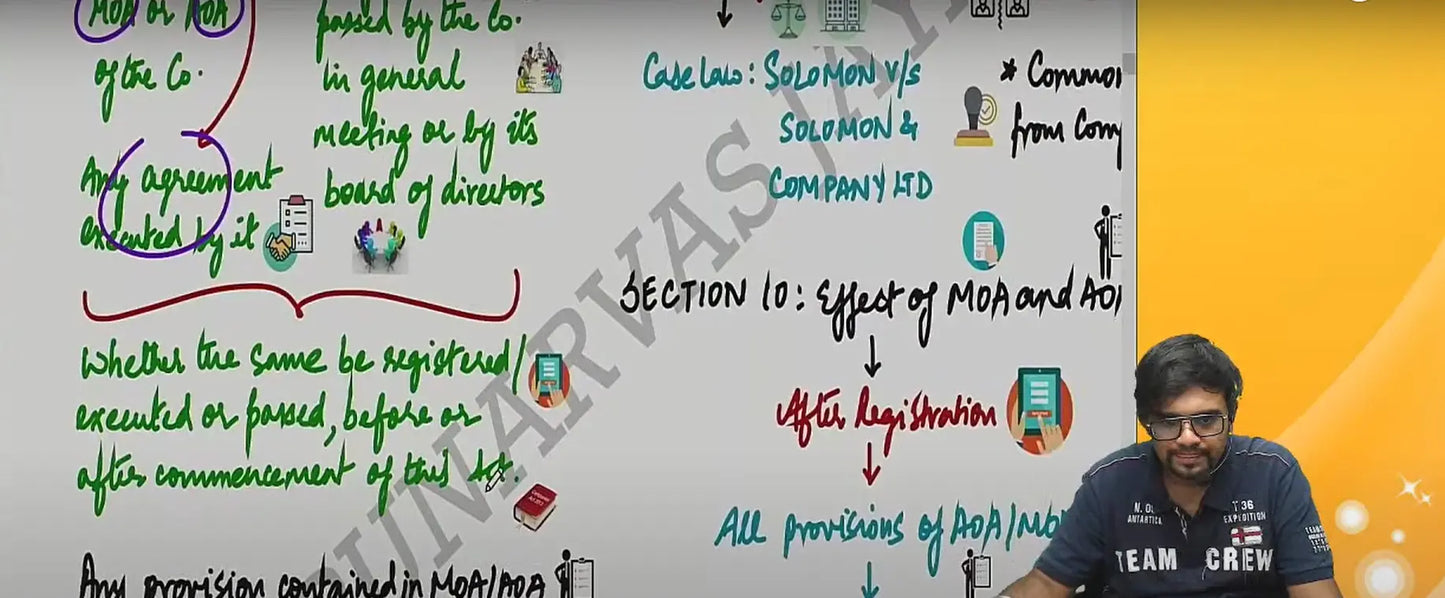 MOA or AOA
of the Co.
Any agreement
executed by it
passed by the Co.
in general
meeting or by its
board of directors
Whether the same be registered/
executed or passed, before or
after commencement of this Act.
Any provision contained in MOA/AOA
Case Law: SOLOMON v/s
SOLOMON &
COMPANY LTD
SECTION 10: Effect of MOA and AOA
After Registration
All provisions of AOA/MOA
* Common
from Comp
PUNARVAS JAY
N. O
ANTARTICA
T 36
EXPEDITION
TEAM CREW